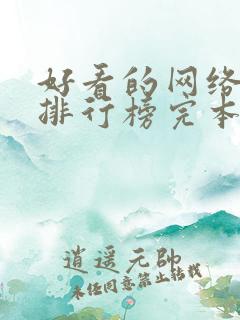 好看的网络
排行榜完本
逍遥元帅
未经同意禁止转载